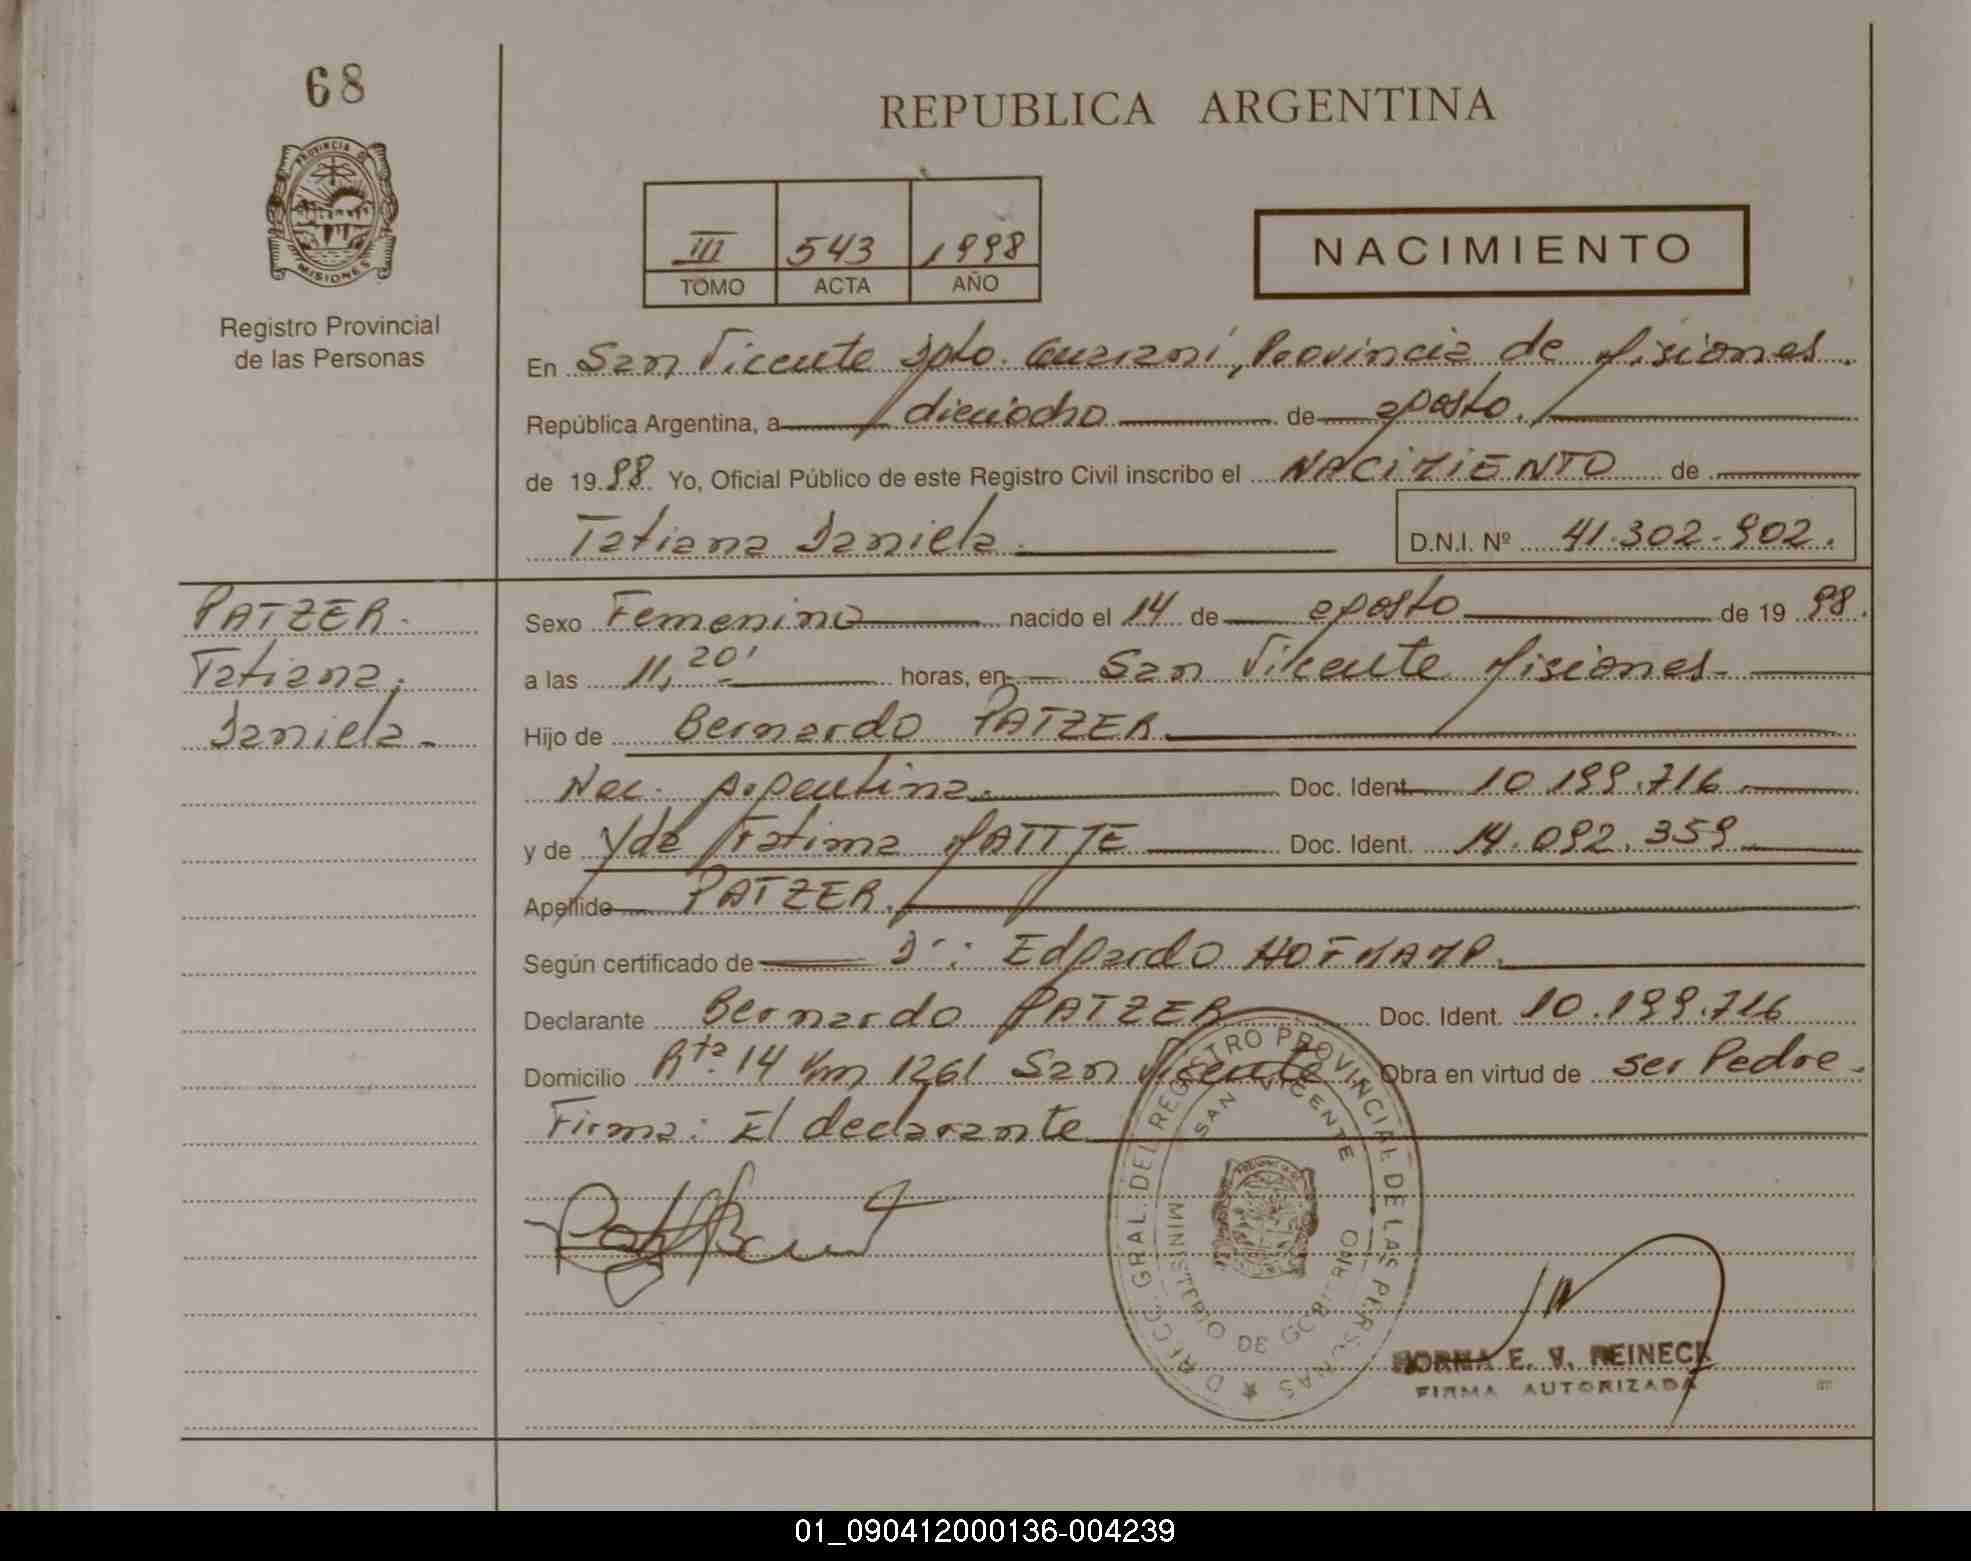 68
REPUBLICA ARGENTINA
PROVINCIA DE
MISIONES
Registro Provincial
de las Personas
III 543 1998
TOMO ACTA AÑO
NACIMIENTO
En San Vicente Dpto. Guaraní, Provincia de Misiones.
República Argentina, a dieciocho de agosto.
de 1998. Yo, Oficial Público de este Registro Civil inscribo el NACIMIENTO de
Tatiana Daniela
D.N.I. Nº 41.302.902.
PATZER.
Tatiana
Daniela
Sexo Femenino nacido el 14 de agosto de 1998.
a las 11,20' horas, en San Vicente Misiones.
Hijo de Bernardo PATZER
Nac. Argentina. Doc. Ident. 10.199.716
y de Yda Fatima MATTJE Doc. Ident. 14.092.359
Apellido PATZER.
Según certificado de Dr: Edgardo HOFKAMP.
Declarante Bernardo PATZER Doc. Ident. 10.199.716
Domicilio Rta. 14 Km 1261 San Vicente Obra en virtud de ser Padre.
Firma: El declarante
DIRECC. GRAL. DEL REGISTRO PROVINCIAL DE LAS PERSONAS
SAN VICENTE
MINISTERIO DE GOBIERNO
NORMA E. V. REINECK
FIRMA AUTORIZADA
01_090412000136-004239